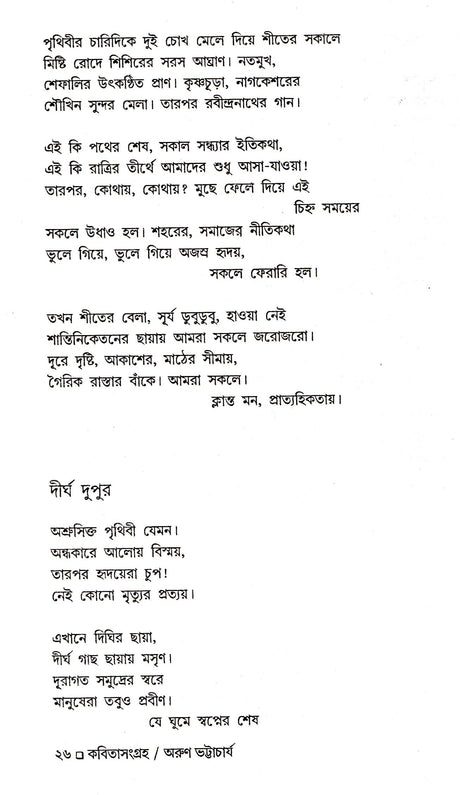 পৃথিবীর চারিদিকে দুই চোখ মেলে দিয়ে শীতের সকালে
মিষ্টি রোদে শিশিরের সরস আঘ্রাণ। নতমুখ,
শেফালির উৎকণ্ঠিত প্রাণ। কৃষ্ণচূড়া, নাগকেশরের
শৌখিন সুন্দর মেলা। তারপর রবীন্দ্রনাথের গান।

এই কি পথের শেষ, সকাল সন্ধ্যার ইতিকথা,
এই কি রাত্রির তীর্থে আমাদের শুধু আসা-যাওয়া!
তারপর, কোথায়, কোথায়? মুছে ফেলে দিয়ে এই
চিহ্ন সময়ের
সকলে উধাও হল। শহরের, সমাজের নীতিকথা
ভুলে গিয়ে, ভুলে গিয়ে অজস্র হৃদয়,
সকলে ফেরারি হল।

তখন শীতের বেলা, সূর্য ডুবুডুবু, হাওয়া নেই
শান্তিনিকেতনের ছায়ায় আমরা সকলে জরোজরো।
দূরে দৃষ্টি, আকাশের, মাঠের সীমায়,
গৈরিক রাস্তার বাঁকে। আমরা সকলে।
ক্লান্ত মন, প্রাত্যহিকতায়।

দীর্ঘ দুপুর

অশ্রুসিক্ত পৃথিবী যেমন।
অন্ধকারে আলোয় বিস্ময়,
তারপর হৃদয়েরা চুপ!
নেই কোনো মৃত্যুর প্রত্যয়।

এখানে দিঘির ছায়া,
দীর্ঘ গাছ ছায়ায় মসৃণ।
দূরাগত সমুদ্রের স্বরে
মানুষেরা তবুও প্রবীণ।
যে ঘুমে স্বপ্নের শেষ

২৬ □ কবিতাসংগ্রহ / অরুণ ভট্টাচার্য